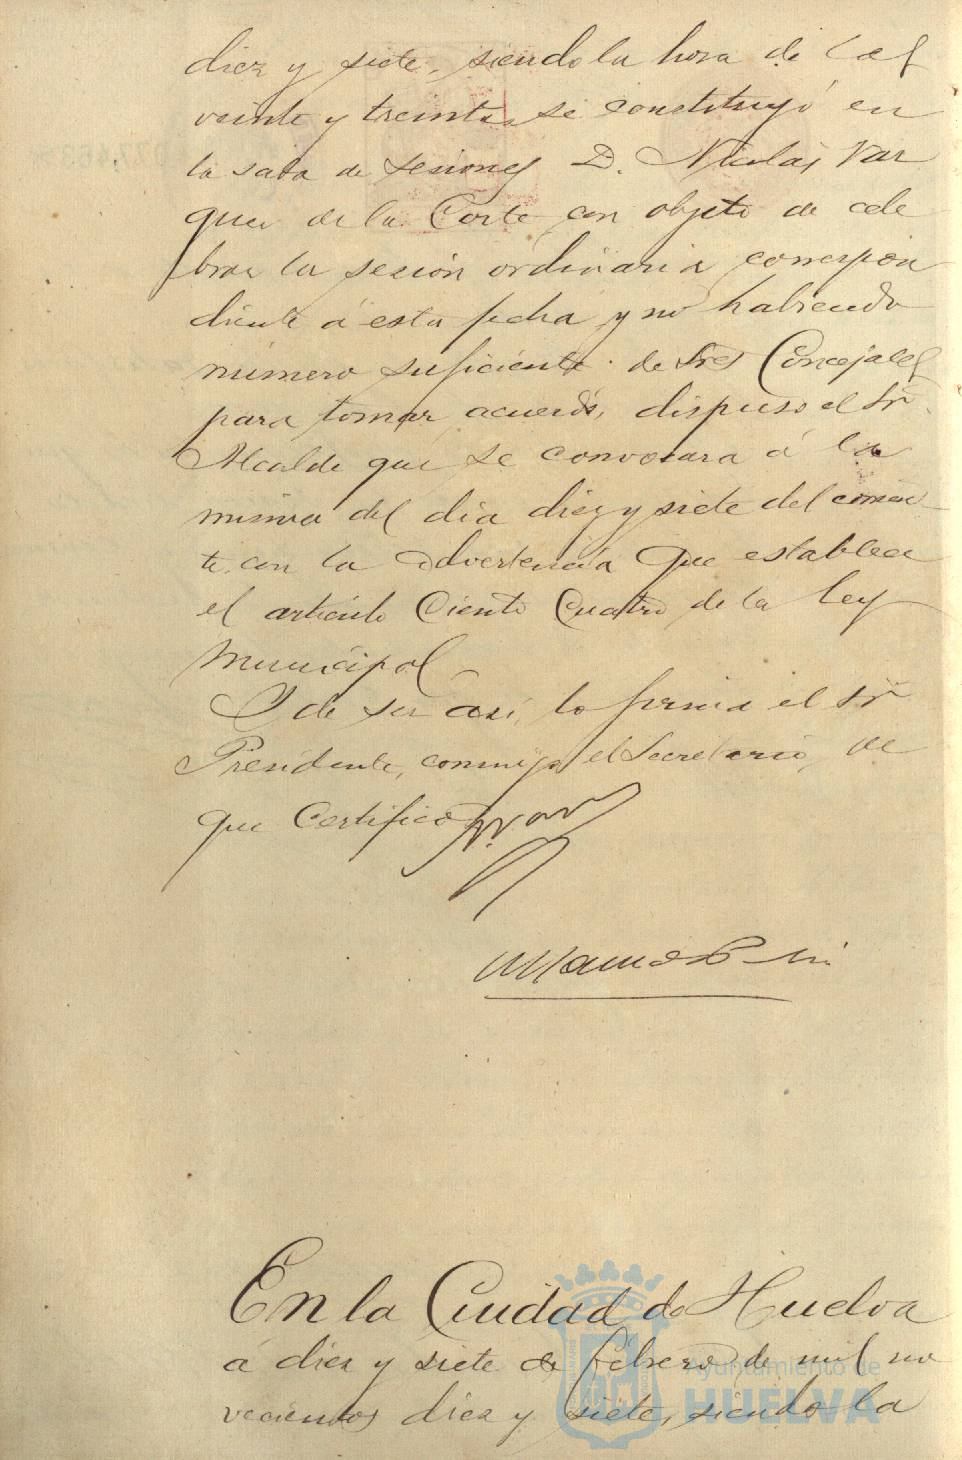 diez y siete, siendo la hora de las
veinte y treinta se constituyó en
la sala de sesiones D. Nicolás Vaz
quez de la Corte con objeto de cele
brar la sesión ordinaria correspon
diente á esta fecha y no habiendo
número suficiente de Sres Concejales
para tomar acuerdos, dispuso el Sr.
Alcalde que se convocara á la
misma del día diez y siete del corrien
te con la advertencia que establece
el artículo Ciento Cuatro de la Ley
Municipal
Y de ser así, lo firma el Sr
Presidente, conmigo el Secretario, de
que Certifico
En la Ciudad de Huelva
á diez y siete de febrero de mil no
vecientos diez y siete, siendo la
Ayuntamiento de
HUELVA